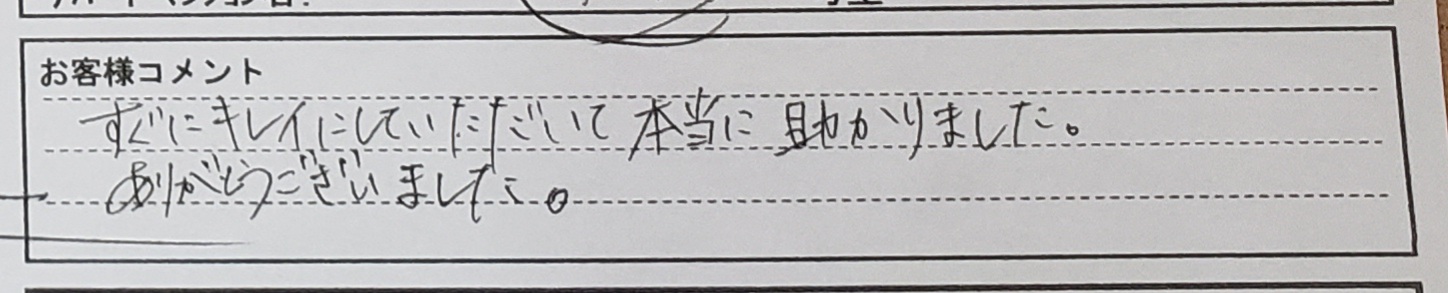 お客様コメント
すぐにキレイにしていただいて本当に助かりました。
ありがとうございました。